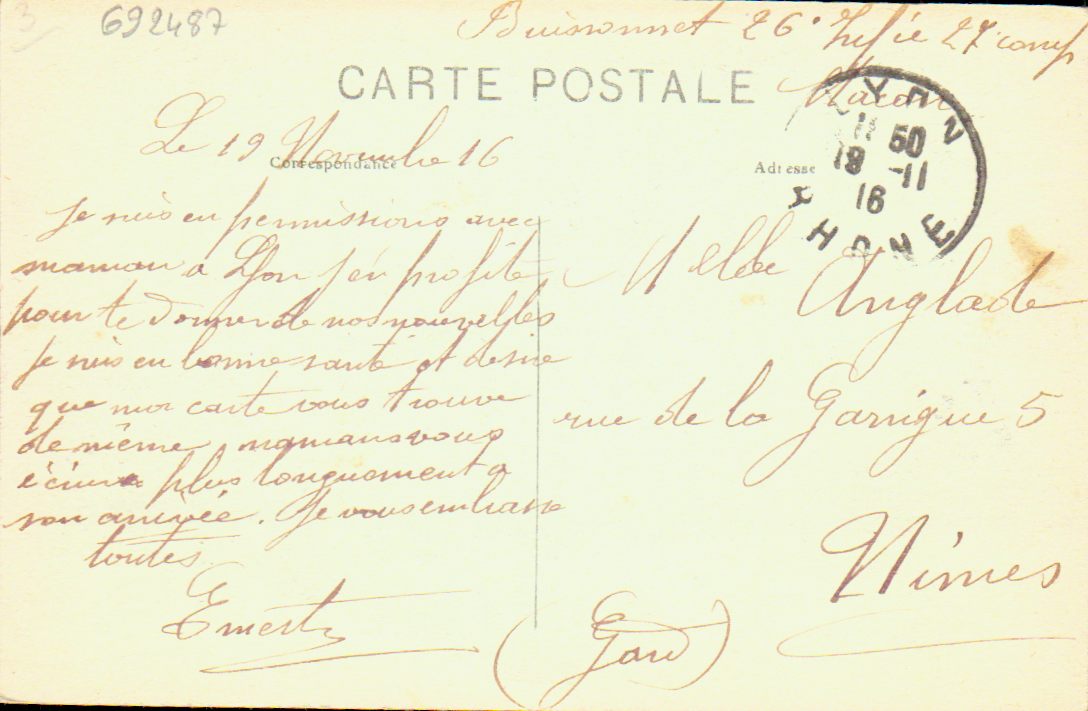 3
692487
Buissonnet 26e 27 comp
Macon
CARTE POSTALE
LYON
11 50
19 -11
16
RHONE
Correspondance
Adresse
Le 19 Novembre 16
Je suis en permissions avec
maman à Lyon j'en profite
pour te donner de nos nouvelles
Je suis en bonne santé et desire
que ma carte vous trouve
de même mamans vous
écriura plus longuement a
son arrivée. Je vous embrasse
toutes
Ernest
Melle Anglade
rue de la Garrigue 5
Nimes
(Gard)